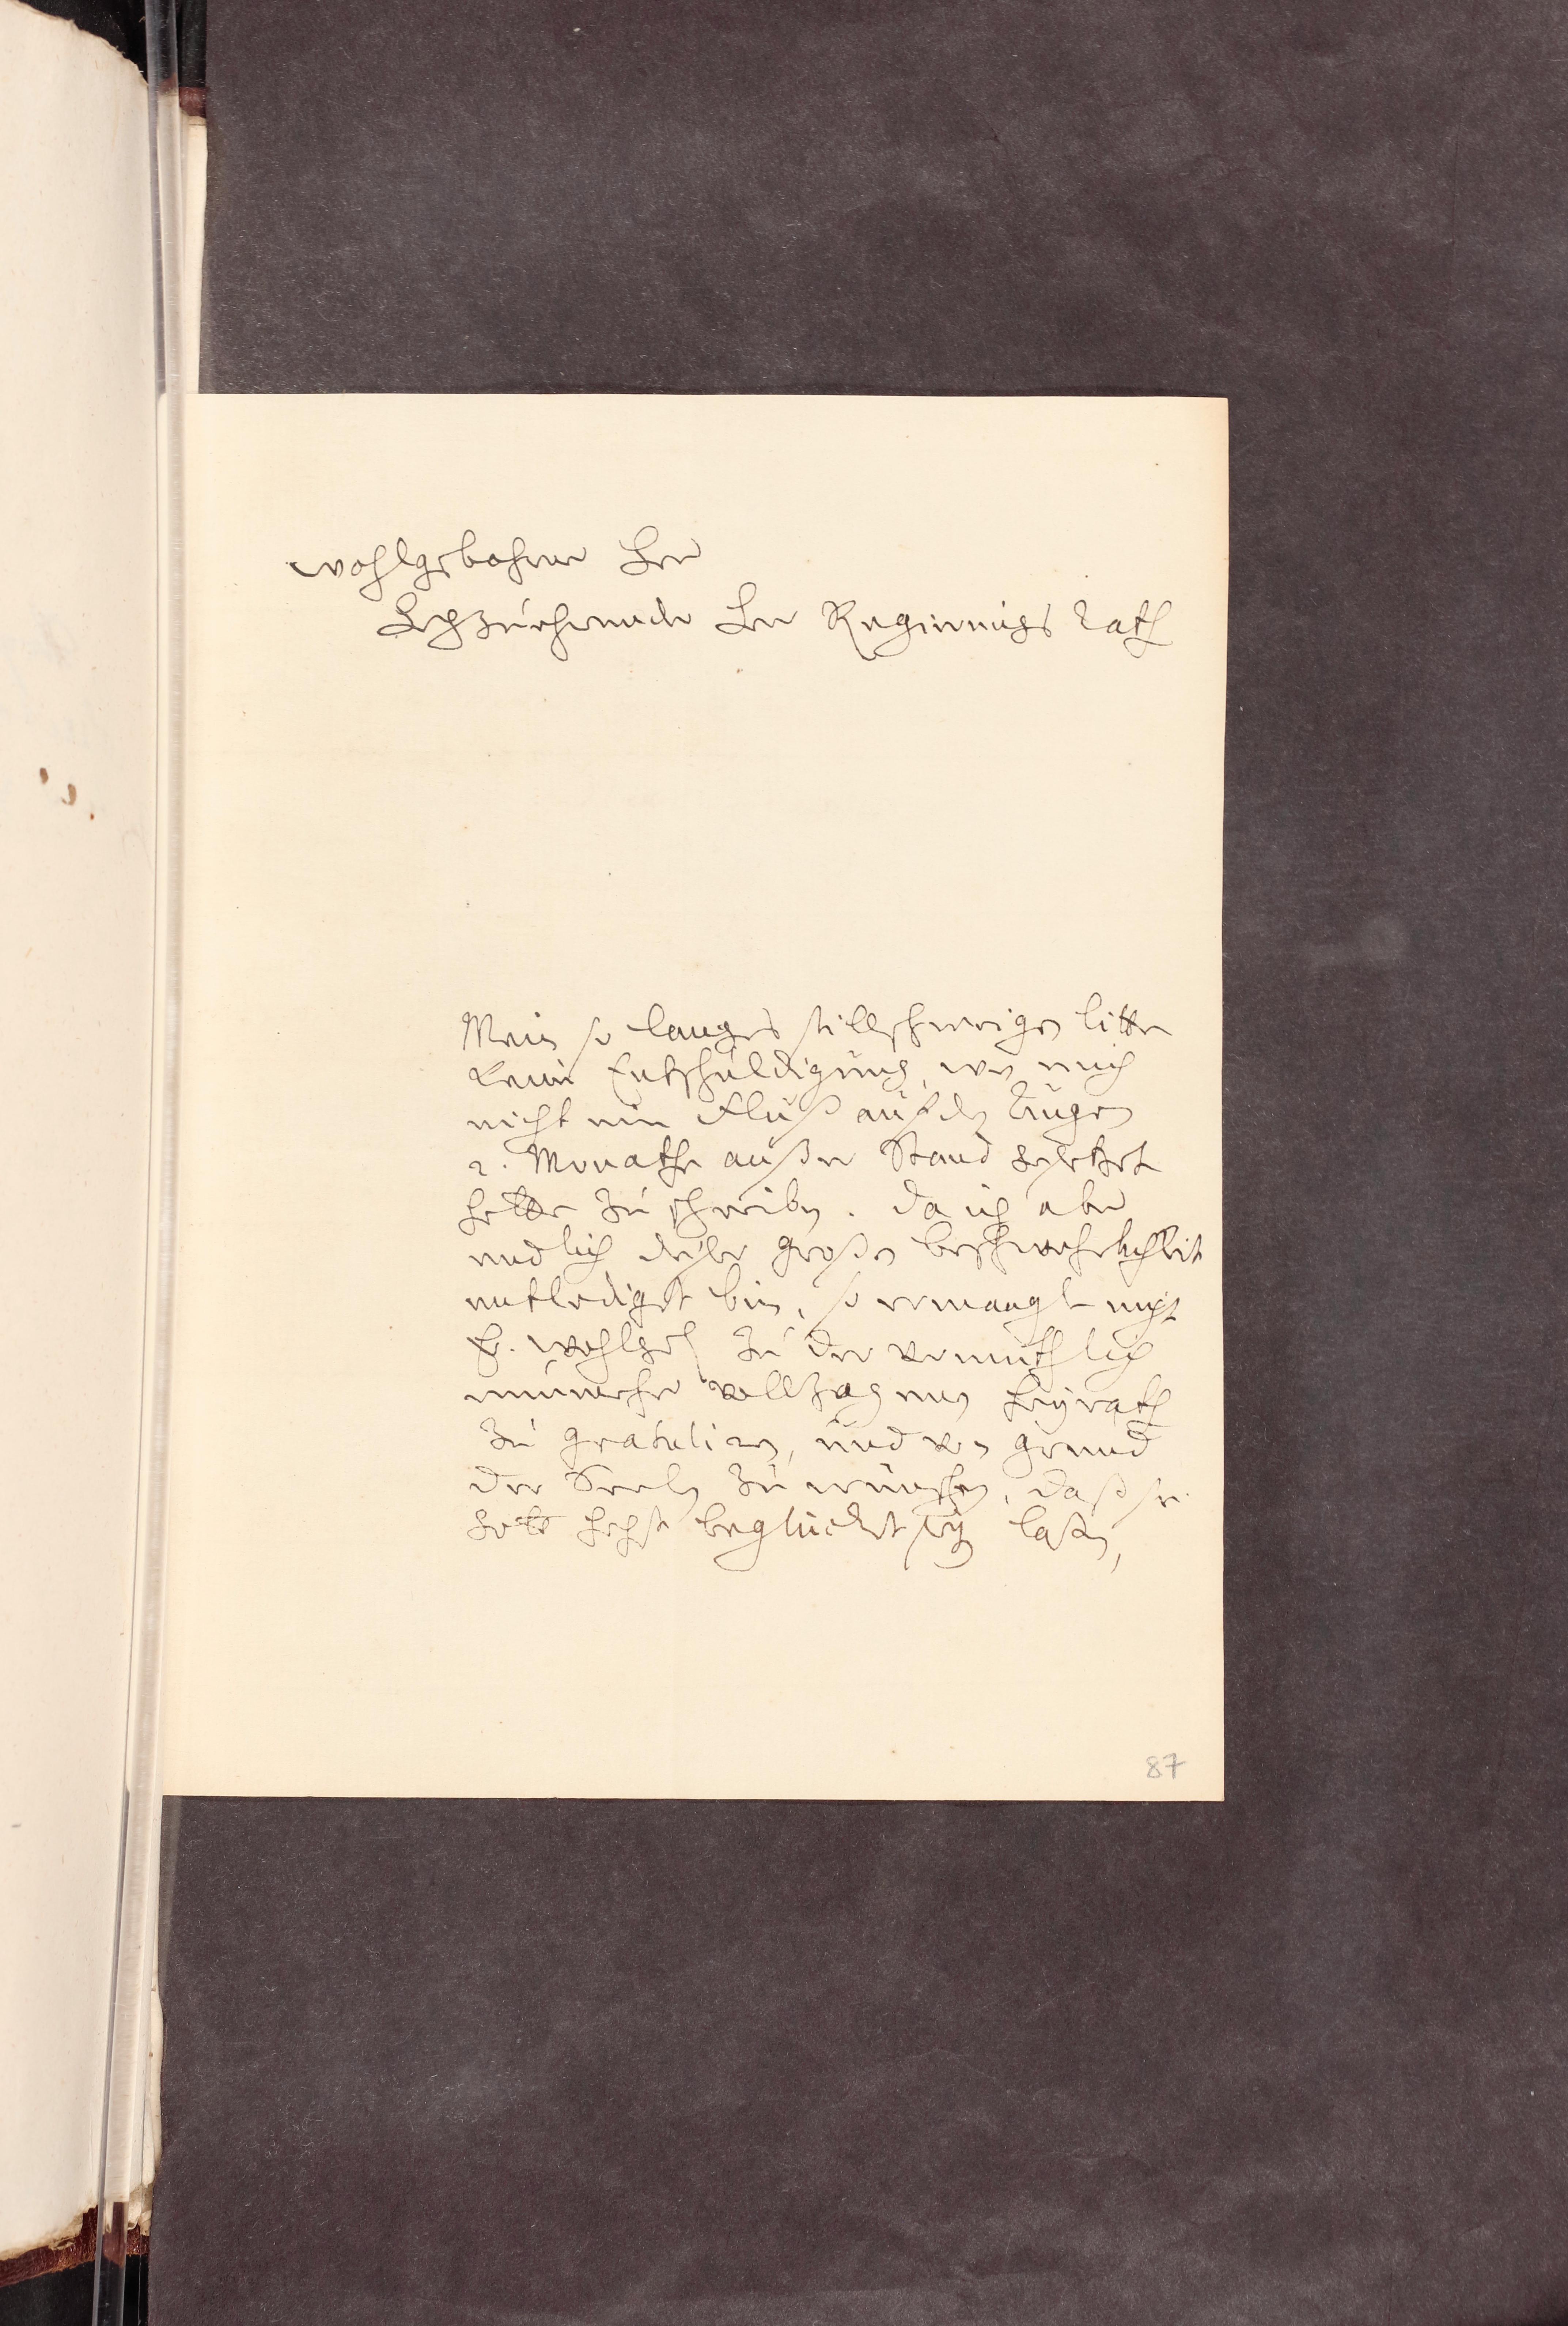 wohlgebohrner Herr
Hochzuehrender Herr Regierungs Rath
Mein so langes stillschweigen litte
keine Entschuldigung, wen mich
nicht ein Fluß auf den Augen
2. Monathe außer Stand gesetzet
hette zu schreiben. da ich aber
endlich dieser großen beschwehrlichkeit
entlediget bin, so ermangle nicht
E. wohlgeb zu der vermuthlich
nunmehr vollzogenen heyrath
zu gratuliren, und von grund
der Seelen zu wünschen, daß sie
gott höchst beglückt seyn laßen,
87